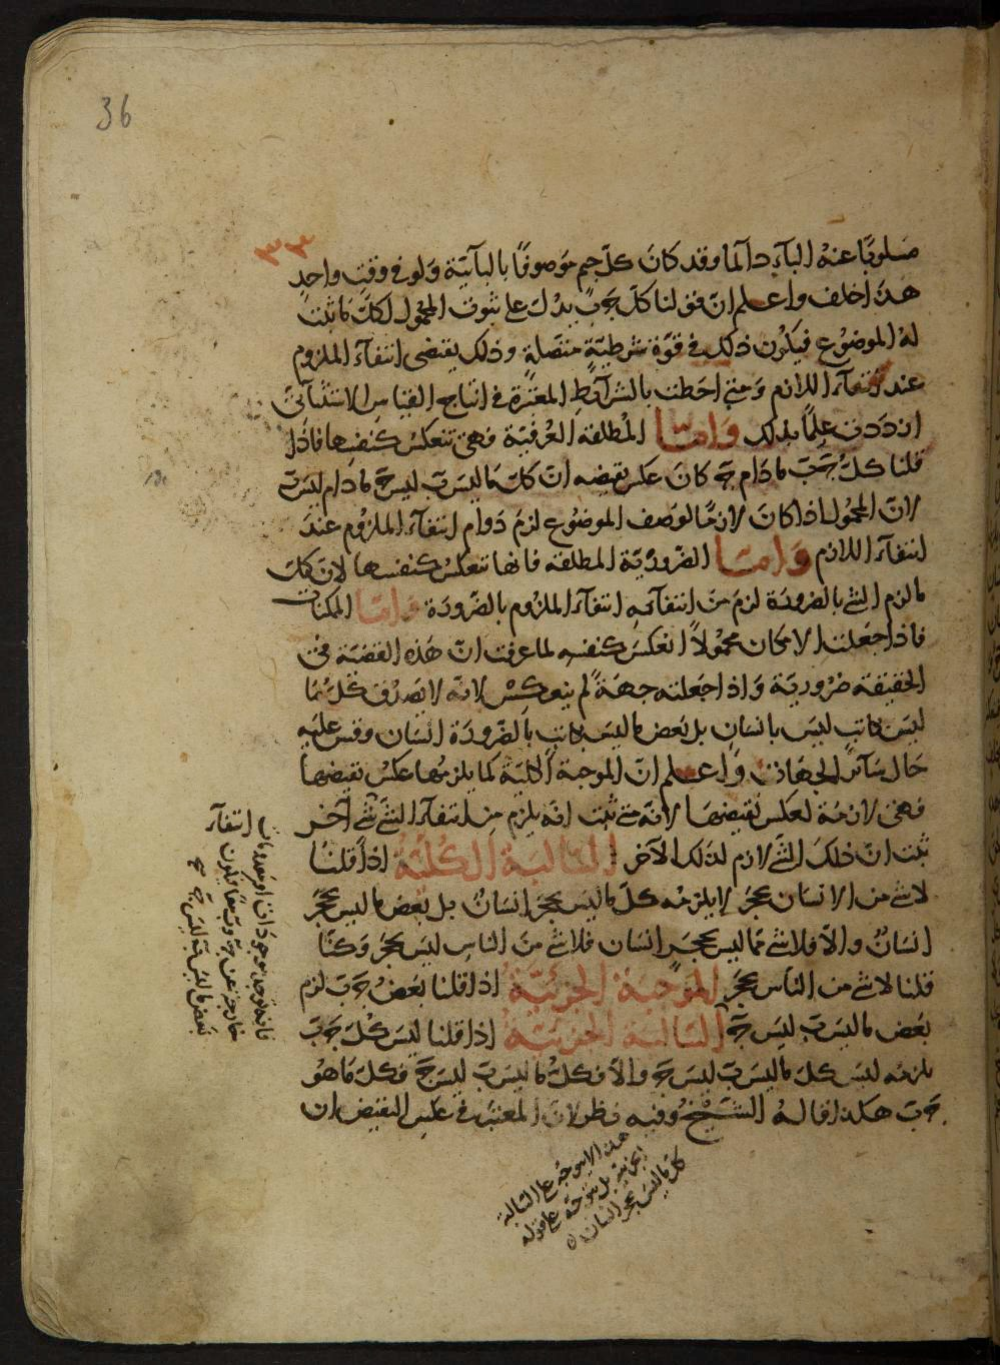 36
٣٣
مسلوبًا عنه البآء دآئما وقد كانَ كلّ جيم موصوفًا بالبآئيّة وَلو فى وقتٍ واحدٍ
هذا خلف واعلم انّ قولنا كلّ جَ بَ يدلّ على ثبوت المحمُول لكلّ ما ثبت
لهُ الموضوُع فيكُون ذلك فى قوّة شرطيّة متّصلةٍ وذلك يقتضى انتفآء الملزوم
عند انتفآء اللازم وَمتى احَطت بالشرآئطِ المعتبرة فى انتاج القياسِ الاستثنآئىّ
ازددت عِلمًا بذلك وَامّا المُطلقة العُرفيّة فهى تنعكسُ كنفسِها فاذا
قلنا كلّ جَ بَ ما دَام جَ كانَ عكس نقيضه انّ كلّ ما ليسَ بَ ليسَ جَ ما دام ليسَ بَ
لانّ المحمُول اذا كانَ لازمًا لوَصف الموضوُع لزمَ دَوام انتفآء الملزُوم عندَ
انتفآء اللازم وَامّا الضّروريّة المطلقة فانها تنعكسُ كنفسها لانّ كلّ
ما لزم الشئ بالضرورة لزمَ منَ انتفآئه انتفآء الملزُوم بالضّرورَة وامّا الممكنات
فاذا جعَلت الامكان محمُولاً انعكسَ كنفسه لما عرفت انّ هَذه القضيّة فى
الحقيقة ضرُوريّة وَاذا جَعلته جهَةً لم ينعكسْ لانّه لا يصَدق كلّ مَا
ليسَ كاتب ليسَ بانسَان بل بَعض ما ليسَ بكاتب بالضّرورَة انسَان وقس عليه
حَال سآئر الجهَات وَاعلم انّ الموجبة الكليّة كما يلزمُها عكسُ نقيضها
فهى لازمَة لعكس نقيضهَا لانّه متى ثبت انّه يلزم من انتفآء الشئ شئ آخر
ثبت انّ ذلكَ الشئ لازم لذلك الآخر السّالبَة الكُليّة اذا قلنَا
لا شئ من الانسَان بحجَر لا يلزمُه كلّ ما ليسَ بحجَر انسَانٌ بل بَعض ما ليسَ بحجَر
انسَانٌ والاّ فلا شئ ممّا ليسَ بحجَر انسَان فلا شئ منَ الناسِ ليسَ بحجَر وَكنّا
قلنا لا شئ من الناس بحجَر المُوجبَة الجزئيّة اذا قلنا بَعضُ جَ بَ لزم
بَعض ما ليسَ بَ ليسَ جَ السّالبَة الجزئيّة اذا قلنا ليسَ كلّ جَ بَ
يلزمه ليسَ كلّ ما ليسَ بَ ليسَ جَ والاّ فكلّ ما ليسَ بَ ليسَ جَ فكلّ مَا هُو
جَ بَ هكذا قالهُ الشّيخُ وَفيه نظر لانّ المعتبَر فى عكس النقيض ان
انتفآء
فانه توجد موجودات او معدومات
خارجة عن جَ وَبَ معًا فيكون
بَعض ما ليسَ بَ ليسَ جَ صح
هذا لا يتوجّه على السّالبة
الجزئيّة بل يتوجّه على قوله
كلّ ما ليسَ بحجر انسان